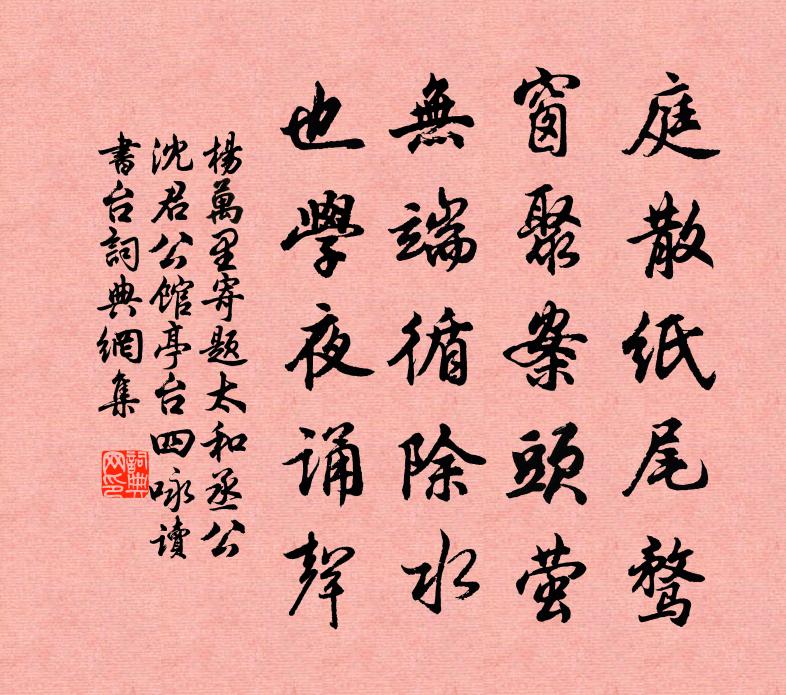 庭散紙尾鶩
窗聚案頭萤
無端循除水
也學夜诵聲
楊萬里寄題太和丞公
沈君公館亭台四咏讀
書台詞典網集
詞典网印